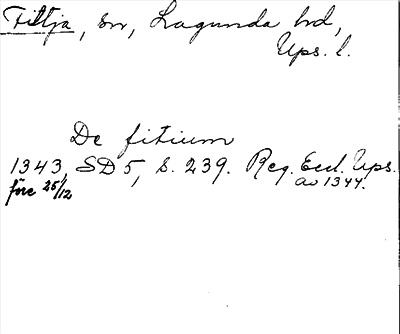 Fittja, sn, Lagunda hd,
Ups. l.
De fitium
1343, SD 5, s. 239. Reg. Eccl. Ups.
före 25/12
av 1344.